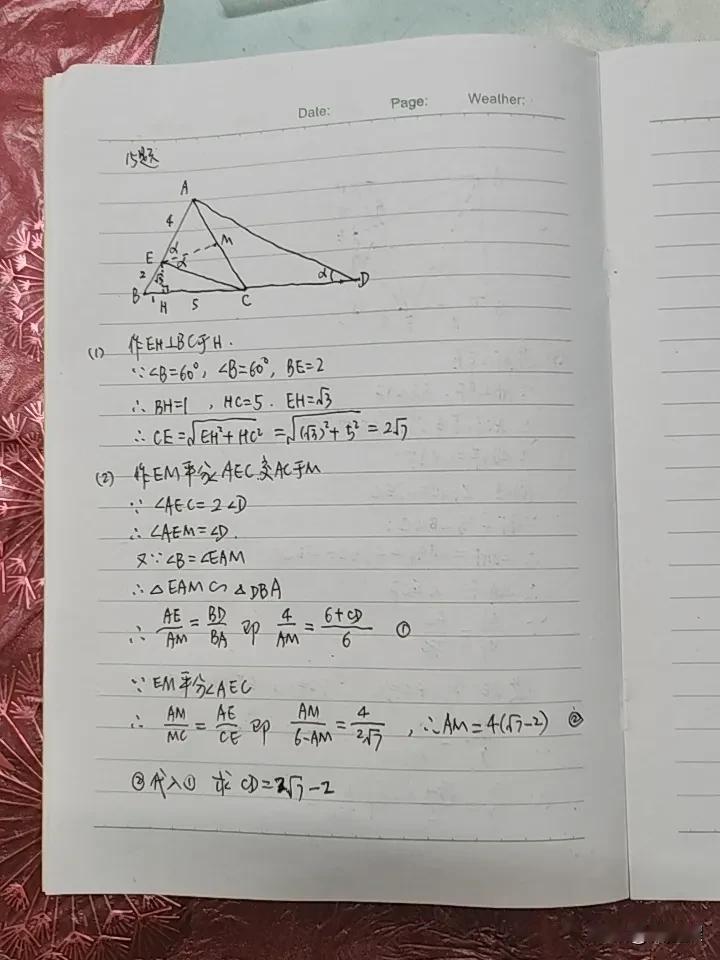 Date: Page: Weather:
15题
A
4
E α M
α
2 √3 α D
B 1 H 5 C
(1) 作EH⊥BC于H.
∵∠B=60°, ∠B=60°, BE=2
∴ BH=1 , HC=5. EH=√3
∴ CE=√(EH²+HC²) =√((√3)²+5²) = 2√7
(2) 作EM平分∠AEC交AC于M
∵ ∠AEC=2∠D
∴ ∠AEM=∠D.
又∵∠B=∠EAM
∴ △EAM∽△DBA
∴ AE/AM = BD/BA 即 4/AM = (6+CD)/6 ①
∵ EM平分∠AEC
∴ AM/MC = AE/CE 即 AM/(6-AM) = 4/(2√7) , ∴AM=4(√7-2) ②
②代入① 求 CD=2√7-2